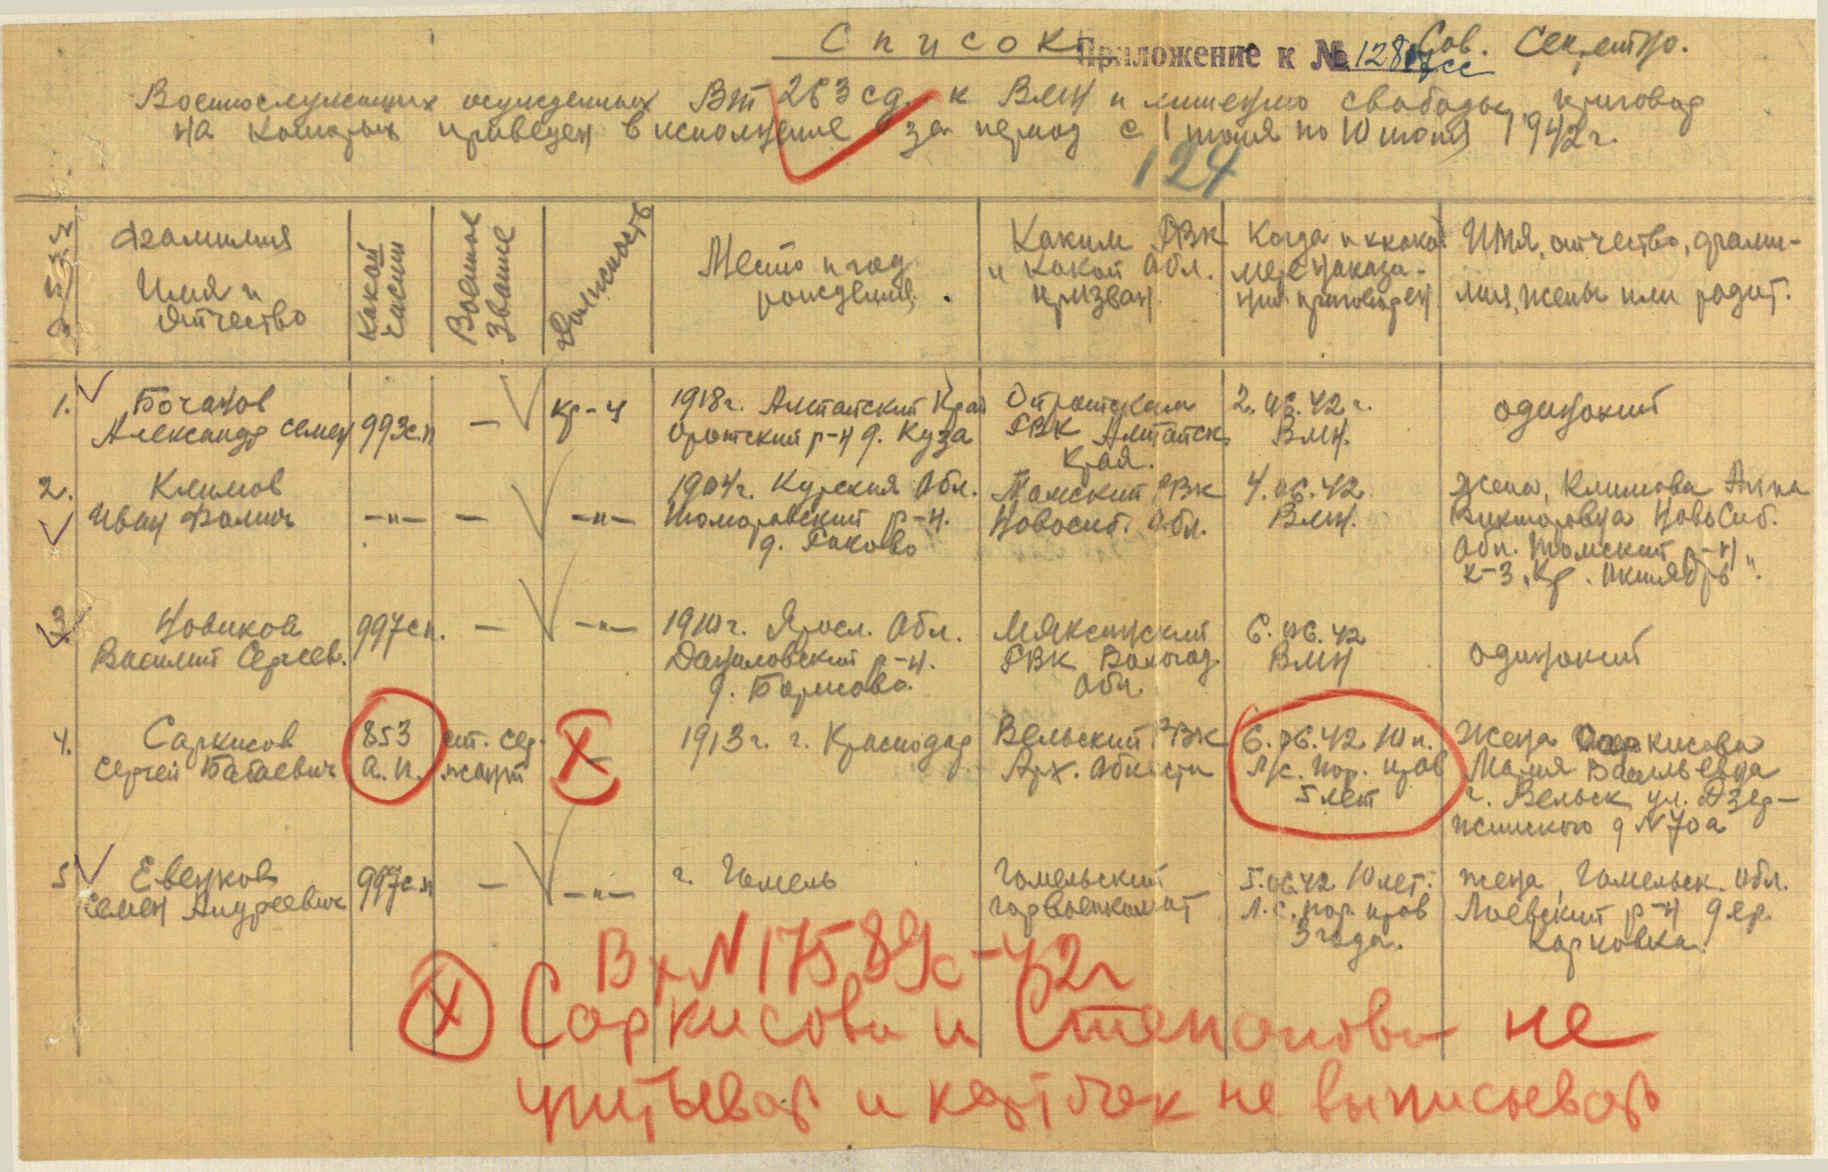 Список
Приложение к № 12817сс
Сов. Секретно.
Военнослужащих осужденных ВТ 263 сд. к ВМН и лишению свободы, приговор
на которых приведен в исполнение за период с 1 июня по 10 июня 1942 г.
124
Фамилия Имя и Отчество
Какой части
Военное звание
Должность
Место и год рождения.
Каким РВК и какой обл. призван
Когда и к какой мере наказания приговорен
Имя, отчество, фамилия, жены или родит.
1. Бочанов 1918 г. Алтайский Край 2.06.42 г. одинокий
Александр Семен 993 с.п — кр-ц р-н д. Куза РВК Алтайск ВМН.
Края.
2. Климов 1904 г. Курская обл. Томский РВК 4.06.42 Жена, Климова Анна
Иван -"- — -"- Томаровский р-н. Новосиб. Обл. ВМН. Викторовна Новосиб.
д. Раково Обл. Томский р-н
к-з „Кр. Октябрь".
3. Новиков 997 с.п. — -"- 1910 г. Яросл. Обл. Мяксинский 6.06.42 одинокий
Василий Сергеев. Даниловский р-н. РВК Вологод. ВМН
д. Борисово. Обл.
4. Саркисов 853 ст. сер- 1913 г. г. Краснодар Вельский РВК 6.06.42 10 л. Жена Саркисова
Сергей а.п. жант Арх. области л/с. пор. прав Мария Васильевна
5 лет г. Вельск ул. Дзер-
жинского д N 70а
5 Евенков 997 с.п — -"- г. Гомель Гомельский 5.06.42 10 лет. жена, Гомельск. Обл.
Семен Андреевич горвоенкомат л.с. пор. прав Лоевский р-н дер.
3 года. Карповка.
Вх N 17589с-42 г
X Саркисова и Степанова не
учитывать и карточек не выписывать